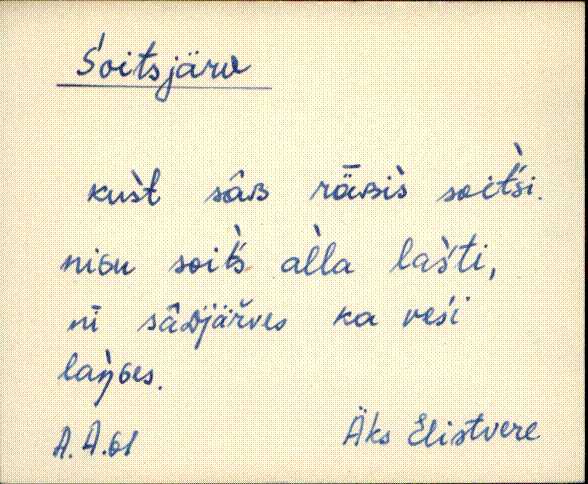 Soitsjärv
kus̀t sâʙ räʙis̀ soit̀śi.
niɢu soit̀s al̀la laśti,
nī sâᴅjär̆ves ka veśi
laŋ̀ɢes.
A. A. 61 Äks Elistvere